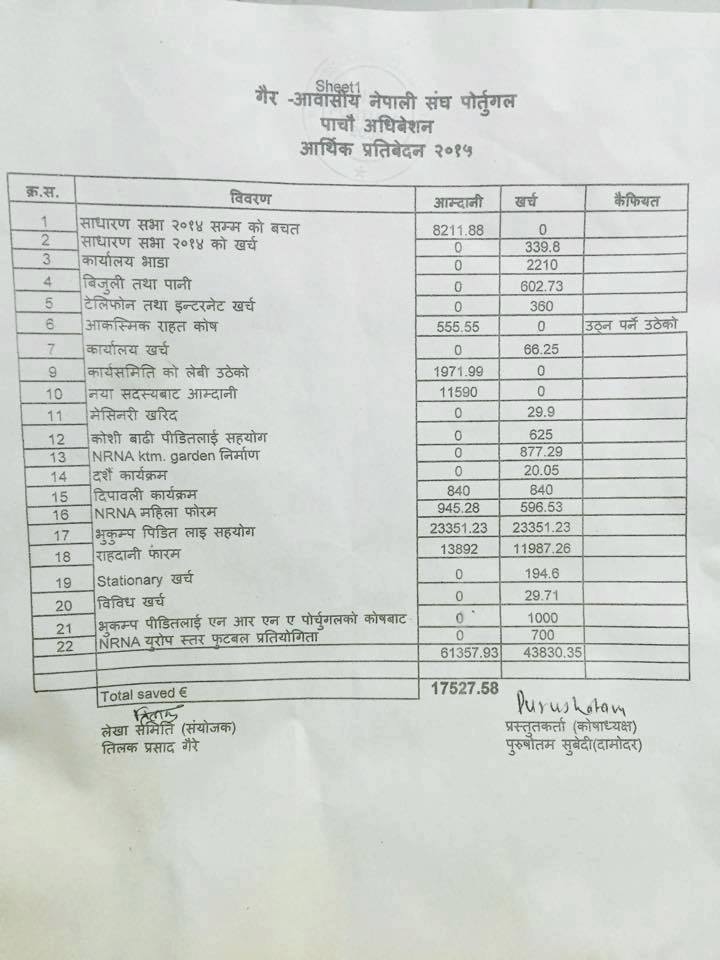 Sheet1
गैर -आवासीय नेपाली संघ पोर्तुगल
पाचौ अधिबेशन
आर्थिक प्रतिबेदन २०१५
क्र.स. विवरण आम्दानी खर्च कैफियत
1 साधारण सभा २०१४ सम्म को बचत 8211.88 0
2 साधारण सभा २०१४ को खर्च 0 339.8
3 कार्यालय भाडा 0 2210
4 बिजुली तथा पानी 0 602.73
5 टेलिफोन तथा इन्टरनेट खर्च 0 360
6 आकस्मिक राहत कोष 555.55 0 उठ्न पर्ने उठेको
7 कार्यालय खर्च 0 66.25
9 कार्यसमिति को लेबी उठेको 1971.99 0
10 नया सदस्यबाट आम्दानी 11590 0
11 मेसिनरी खरिद 0 29.9
12 कोशी बाढी पीडितलाई सहयोग 0 625
13 NRNA ktm. garden निर्माण 0 877.29
14 दशैं कार्यक्रम 0 20.05
15 दिपावली कार्यक्रम 840 840
16 NRNA महिला फोरम 945.28 596.53
17 भुकुम्प पिडित लाइ सहयोग 23351.23 23351.23
18 राहदानी फारम 13892 11987.26
19 Stationary खर्च 0 194.6
20 विविध खर्च 0 29.71
21 भुकम्प पीडितलाई एन आर एन ए पोर्चुगलको कोषबाट 0 1000
22 NRNA युरोप स्तर फुटबल प्रतियोगिता 0 700
61357.93 43830.35
Total saved € 17527.58
तिलक Puruskotam
लेखा समिति (संयोजक) प्रस्तुतकर्ता (कोषाध्यक्ष)
तिलक प्रसाद गैरे पुरुषोतम सुबेदी(दामोदर)